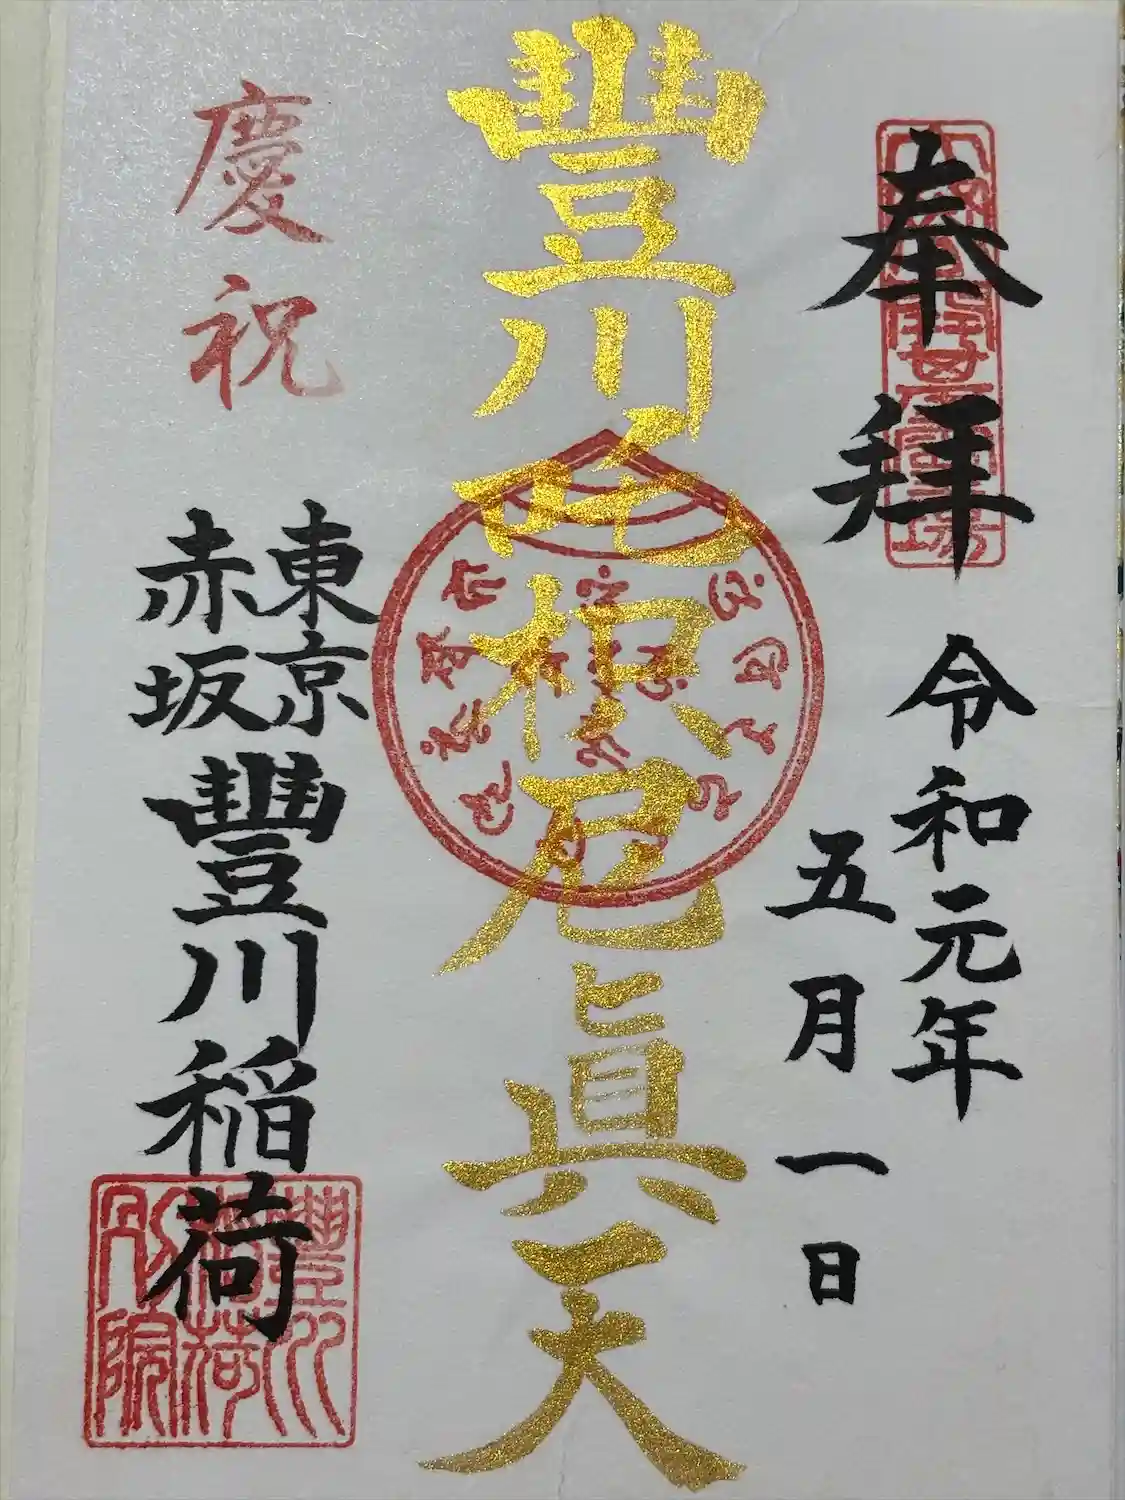 奉拝
令和元年
五月一日
豐川吒枳尼眞天
慶祝
東京
赤坂
豐川稲荷
豐川稲荷別院